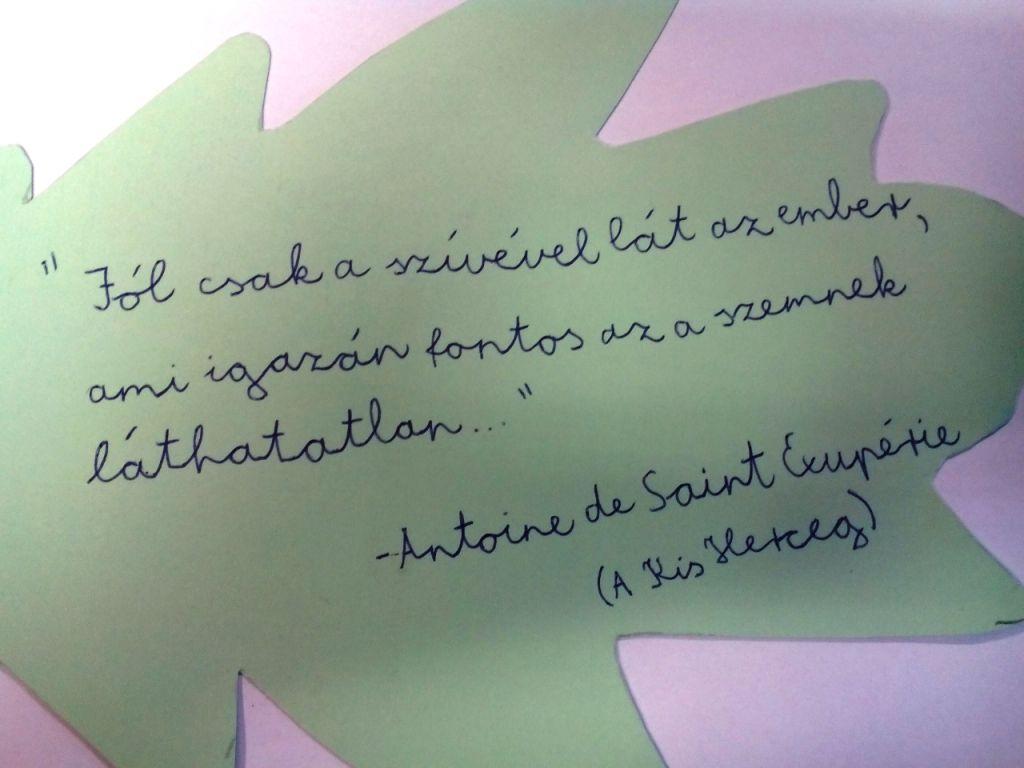 "Jól csak a szívével lát az ember,
ami igazán fontos az a szemnek
láthatatlan..."
-Antoine de Saint Exupérie
(A Kis Herceg)